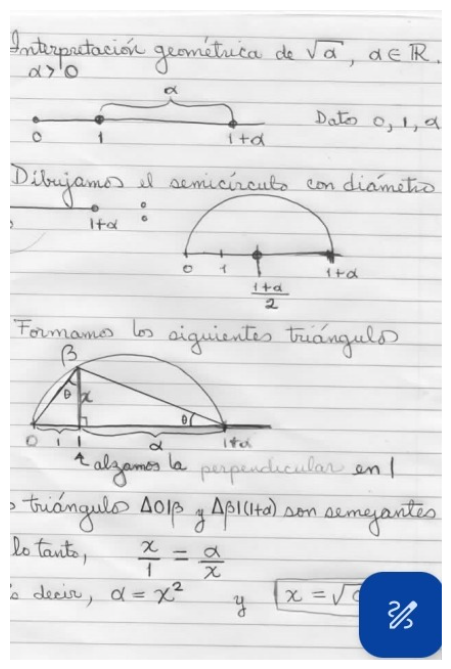 Interpretación geométrica de √α, α ∈ ℝ.
α > 0
α
Dato 0, 1, α
0 1 1+α
Dibujamos el semicírculo con diámetro
1+α :
0 1 1+α
1+α
2
Formamos los siguientes triángulos
β
θ x θ
0 1 1 α 1+α
↑ alzamos la perpendicular en 1
triángulo Δ01β y Δβ1(1+α) son semejantes
lo tanto, x/1 = α/x
decir, α = x² y x = √